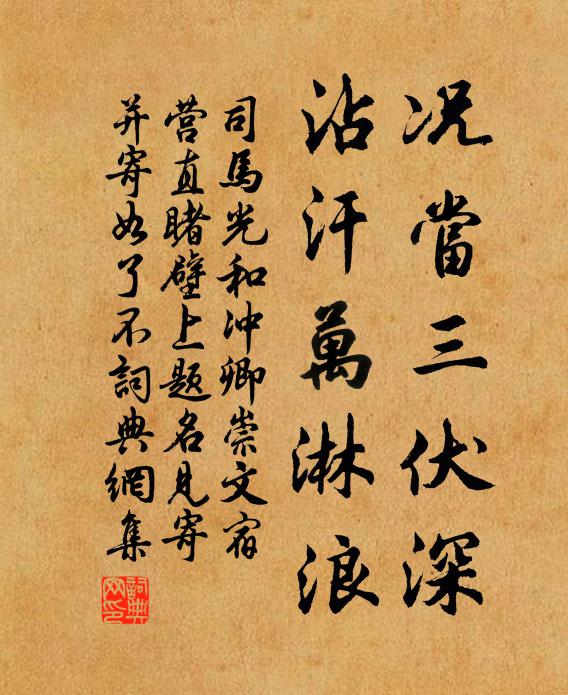 况當三伏深
沾汗萬淋浪
司馬光和沖卿崇文宿
营直睹壁上题名見寄
并寄如了不詞典網集
詞典
网印